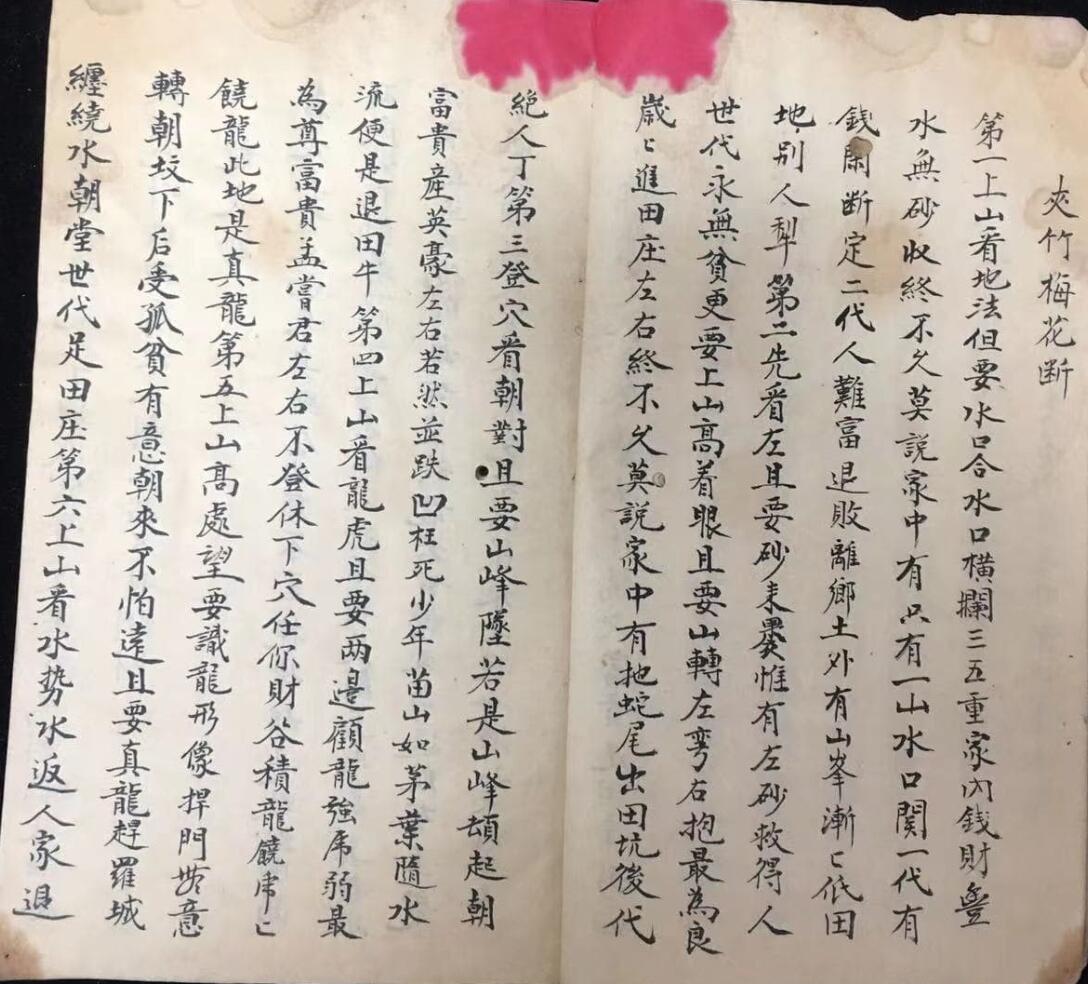 夾竹梅花断
第一上山看地法但要水口合水口横攔三五重家内銭財豊
水無砂收終不久莫説家中有只有一山水口関一代有
銭閑断定二代人難富退敗離鄉土外有山峯漸〻低田
地別人犁第二先看左且要砂来異惟有左砂救得人
世代永無貧更要上山高着眼且要山轉左弯右抱最為良
歳〻進田庄左右終不久莫説家中有地蛇尾出田坑後代
絶人丁第三登穴看朝對且要山峰墜若是山峰頓起朝
富貴産英豪左右若然並跌凹枉死少年苗山如茅葉隨水
流便是退田牛第四上山看龍虎且要両邉顧龍強虎弱最
為尊富貴孟嘗君左右不登休下穴任你財谷積龍饒虎〻
饒龍此地是真龍第五上山高處望要識龍形像捍門意
轉朝坟下后受孤貧有意朝來不怕遠且要真龍趕羅城
纒繞水朝堂世代足田庄第六上山看水勢水返人家退